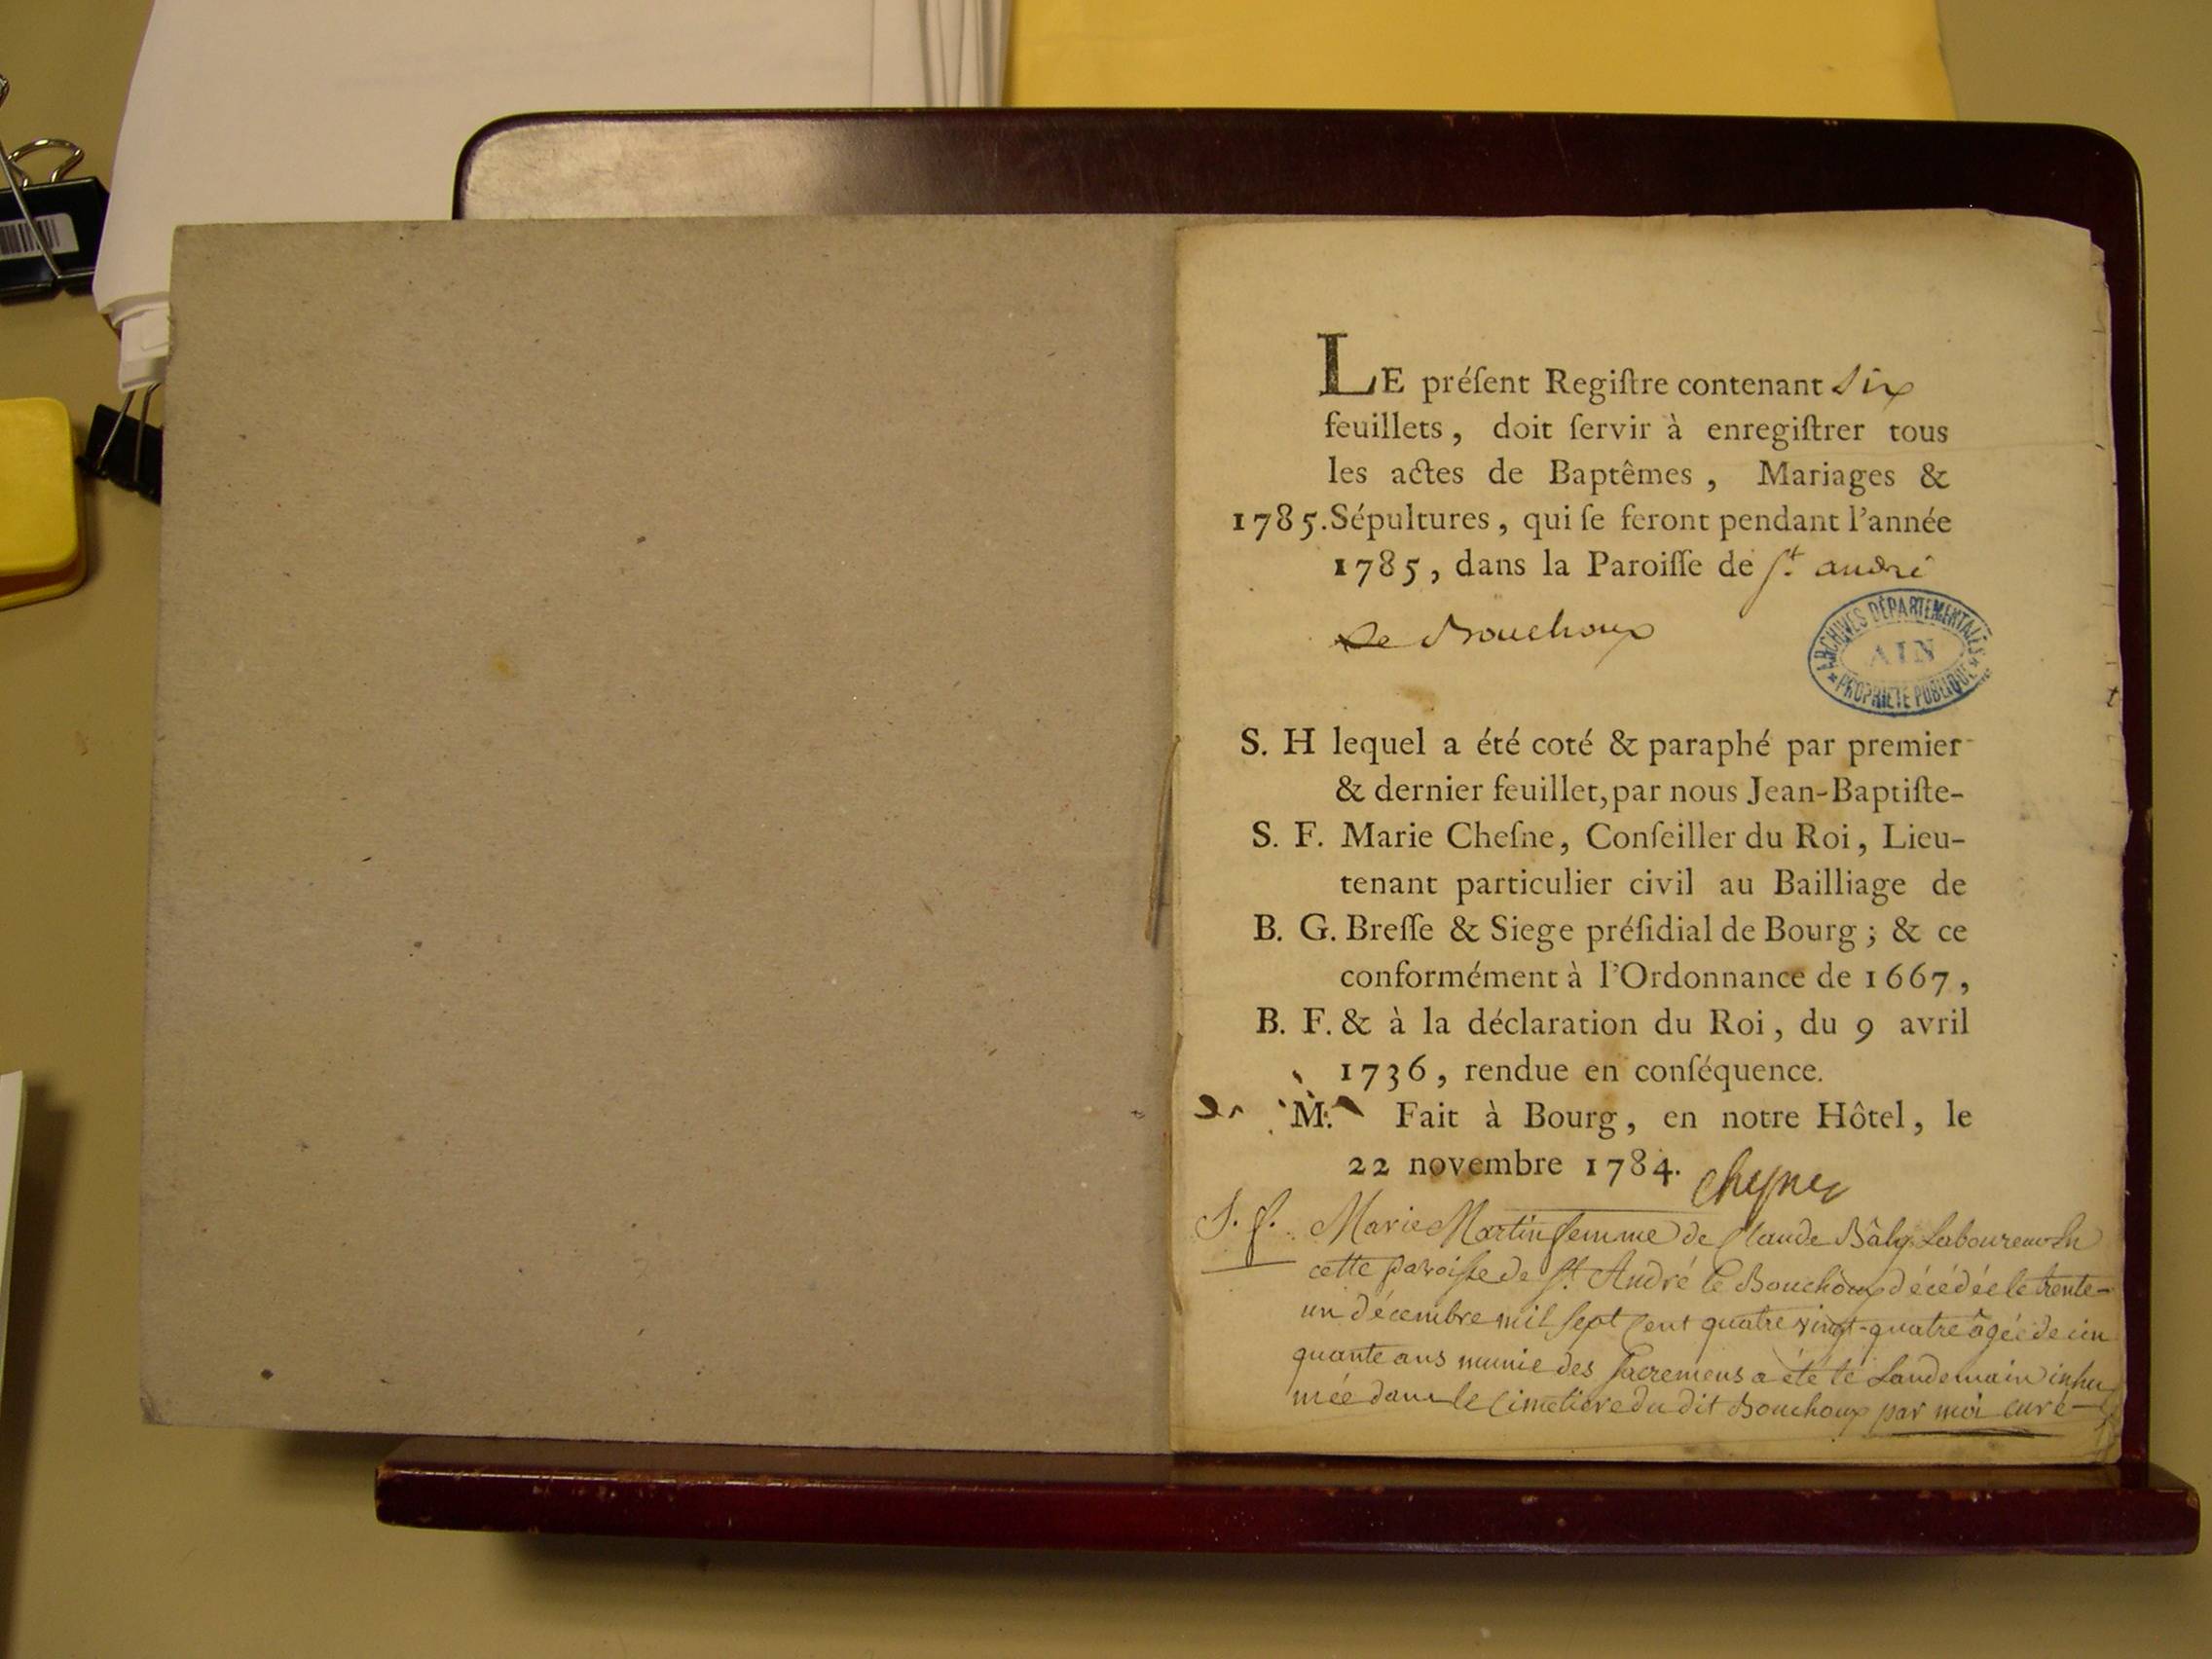 LE préſent Regiſtre contenant Six
feuillets, doit ſervir à enregiſtrer tous
les actes de Baptêmes, Mariages &
1785. Sépultures, qui ſe feront pendant l'année
1785, dans la Paroiſſe de St. andré
de Bouchoux
ARCHIVES DÉPARTEMENTALES
AIN
* PROPRIÉTÉ PUBLIQUE *
S. H lequel a été coté & paraphé par premier
& dernier feuillet, par nous Jean-Baptiſte-
S. F. Marie Cheſne, Conſeiller du Roi, Lieu-
tenant particulier civil au Bailliage de
B. G. Breſſe & Siege préſidial de Bourg ; & ce
conformément à l'Ordonnance de 1667,
B. F. & à la déclaration du Roi, du 9 avril
1736, rendue en conſéquence.
M. Fait à Bourg, en notre Hôtel, le
22 novembre 1784.
S. f. Marie Martin femme de Claude Laboureur
cette paroisse de St. André le Bouchoux décédée le trente-
un décembre mil sept cent quatre vingt-quatre âgée de cin
quante ans munie des Sacremens a été le Landemain inhu
mée dans le Cimetière du dit Bouchoux par moi curé